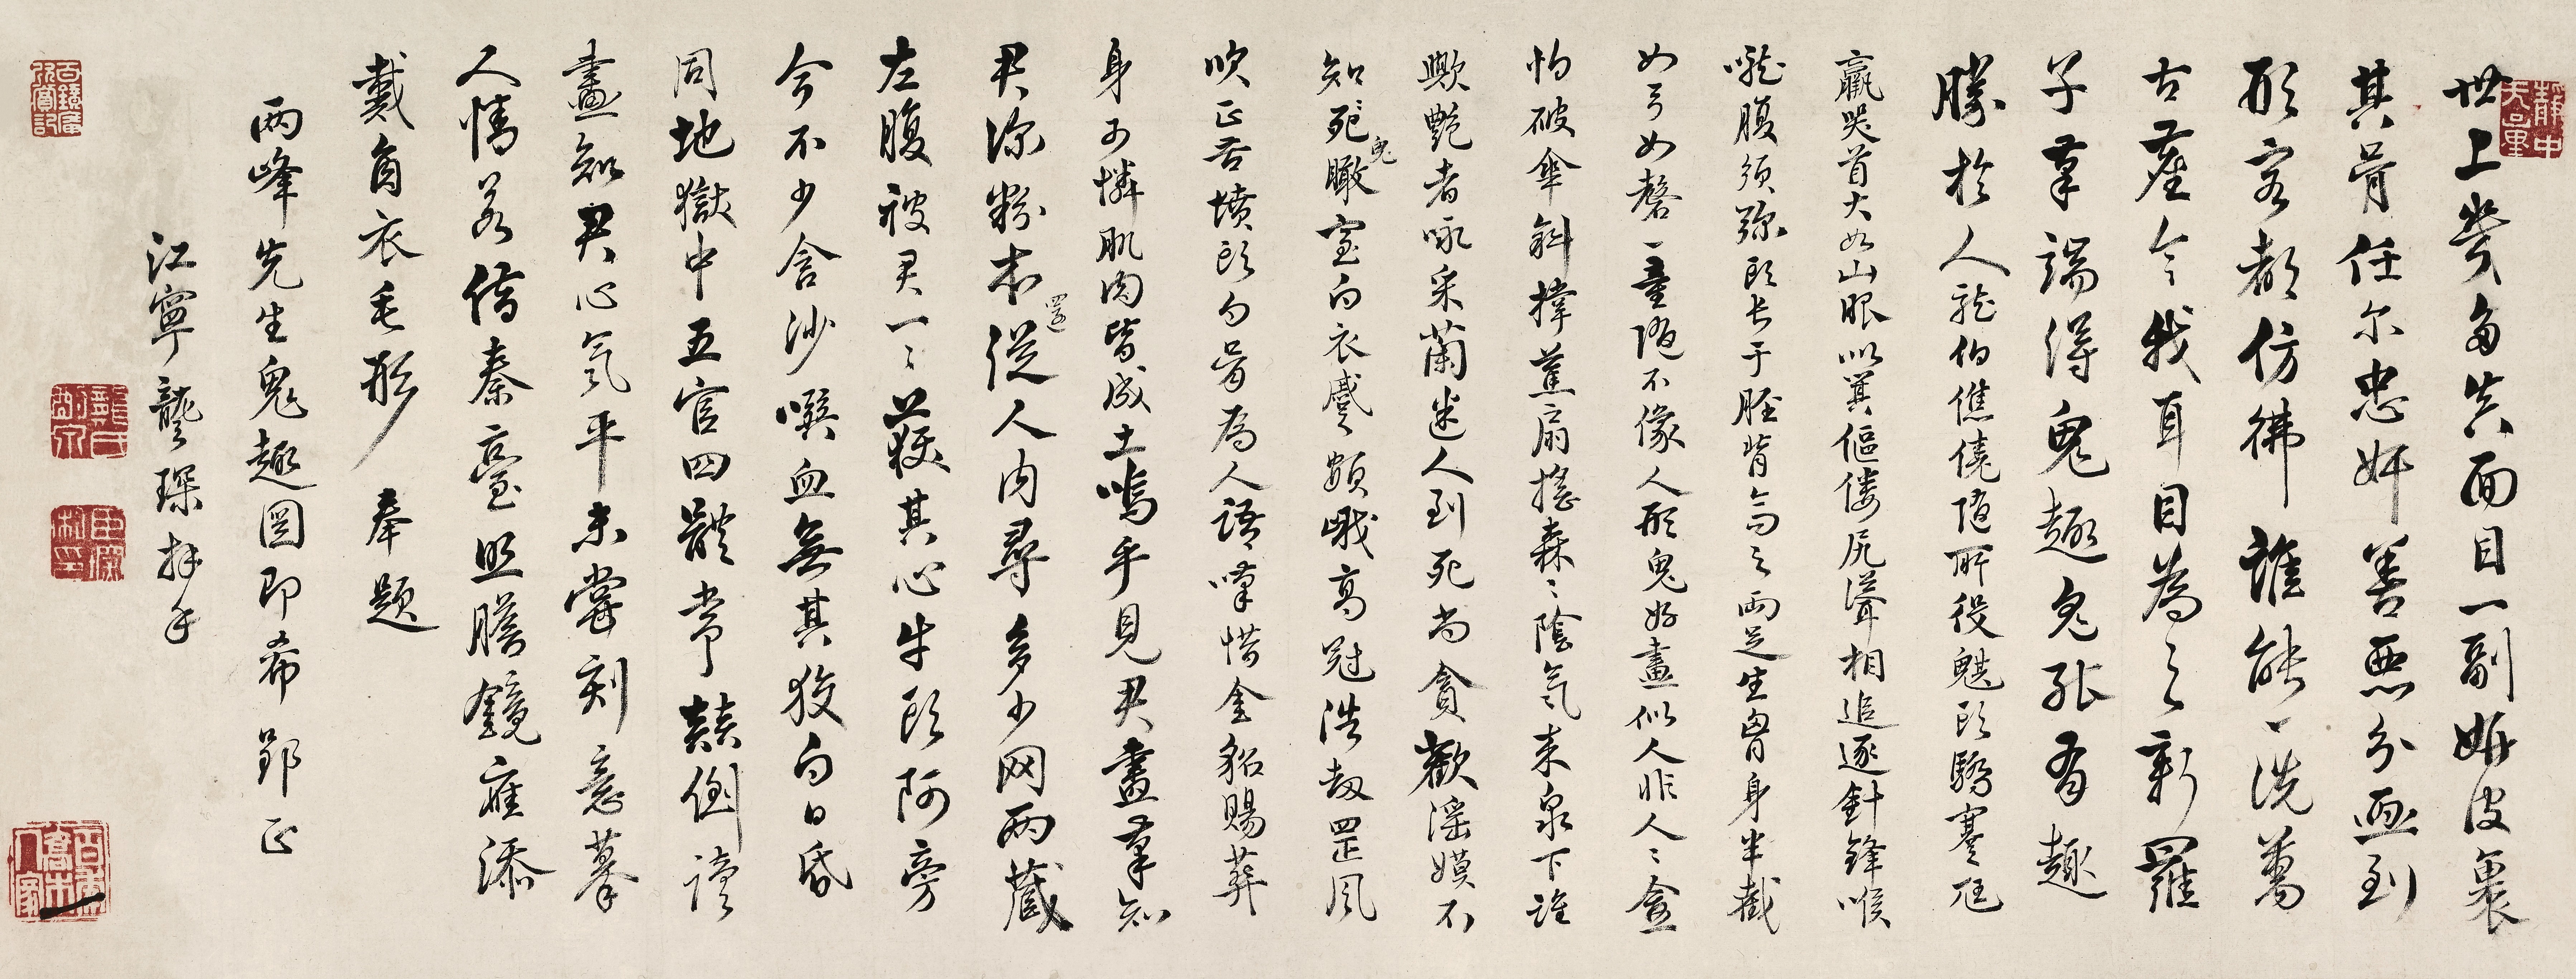 世上幾多真面目一副妍皮裹
其骨任尔忠奸善惡分画到
形容都仿彿誰能一洗萬
古塵今我耳目為之新羅
子筆端得鬼趣鬼趣有趣
勝於人龍伯僬僥隨所役魃頭驕蹇尪
羸哭首大如山眼似箕傴僂尻聳相追逐針鋒喉
嚨腹須彌頭長于脛背高之兩足生胷身半截
如弓如磬一童隨不像人形鬼好畫似人非人人盒
怕破傘斜撐蕉扇搖森森陰氣来泉下誰
歟艷者咏采蘭迷人到死尚貪歡淫嫫不
知死鬼瞰室白衣蹙額峨高冠浩劫罡風
吹正吞墳頭白骨為人語嘆惜金貂賜葬
身可憐肌肉皆成土嗚乎見君畫筆知
君深粉本還從人内尋多少网兩藏
左腹被君一一獲其心牛頭阿旁
今不少含沙噀血無其狡白日昏
同地獄中五官四體常顛倒讀
畫知君心氣平未嘗刻意摹
人情若借秦臺照膽鏡應添
戴角衣毛形 奉題
兩峰先生鬼趣圖即希郢正
江寧龔琛拜手